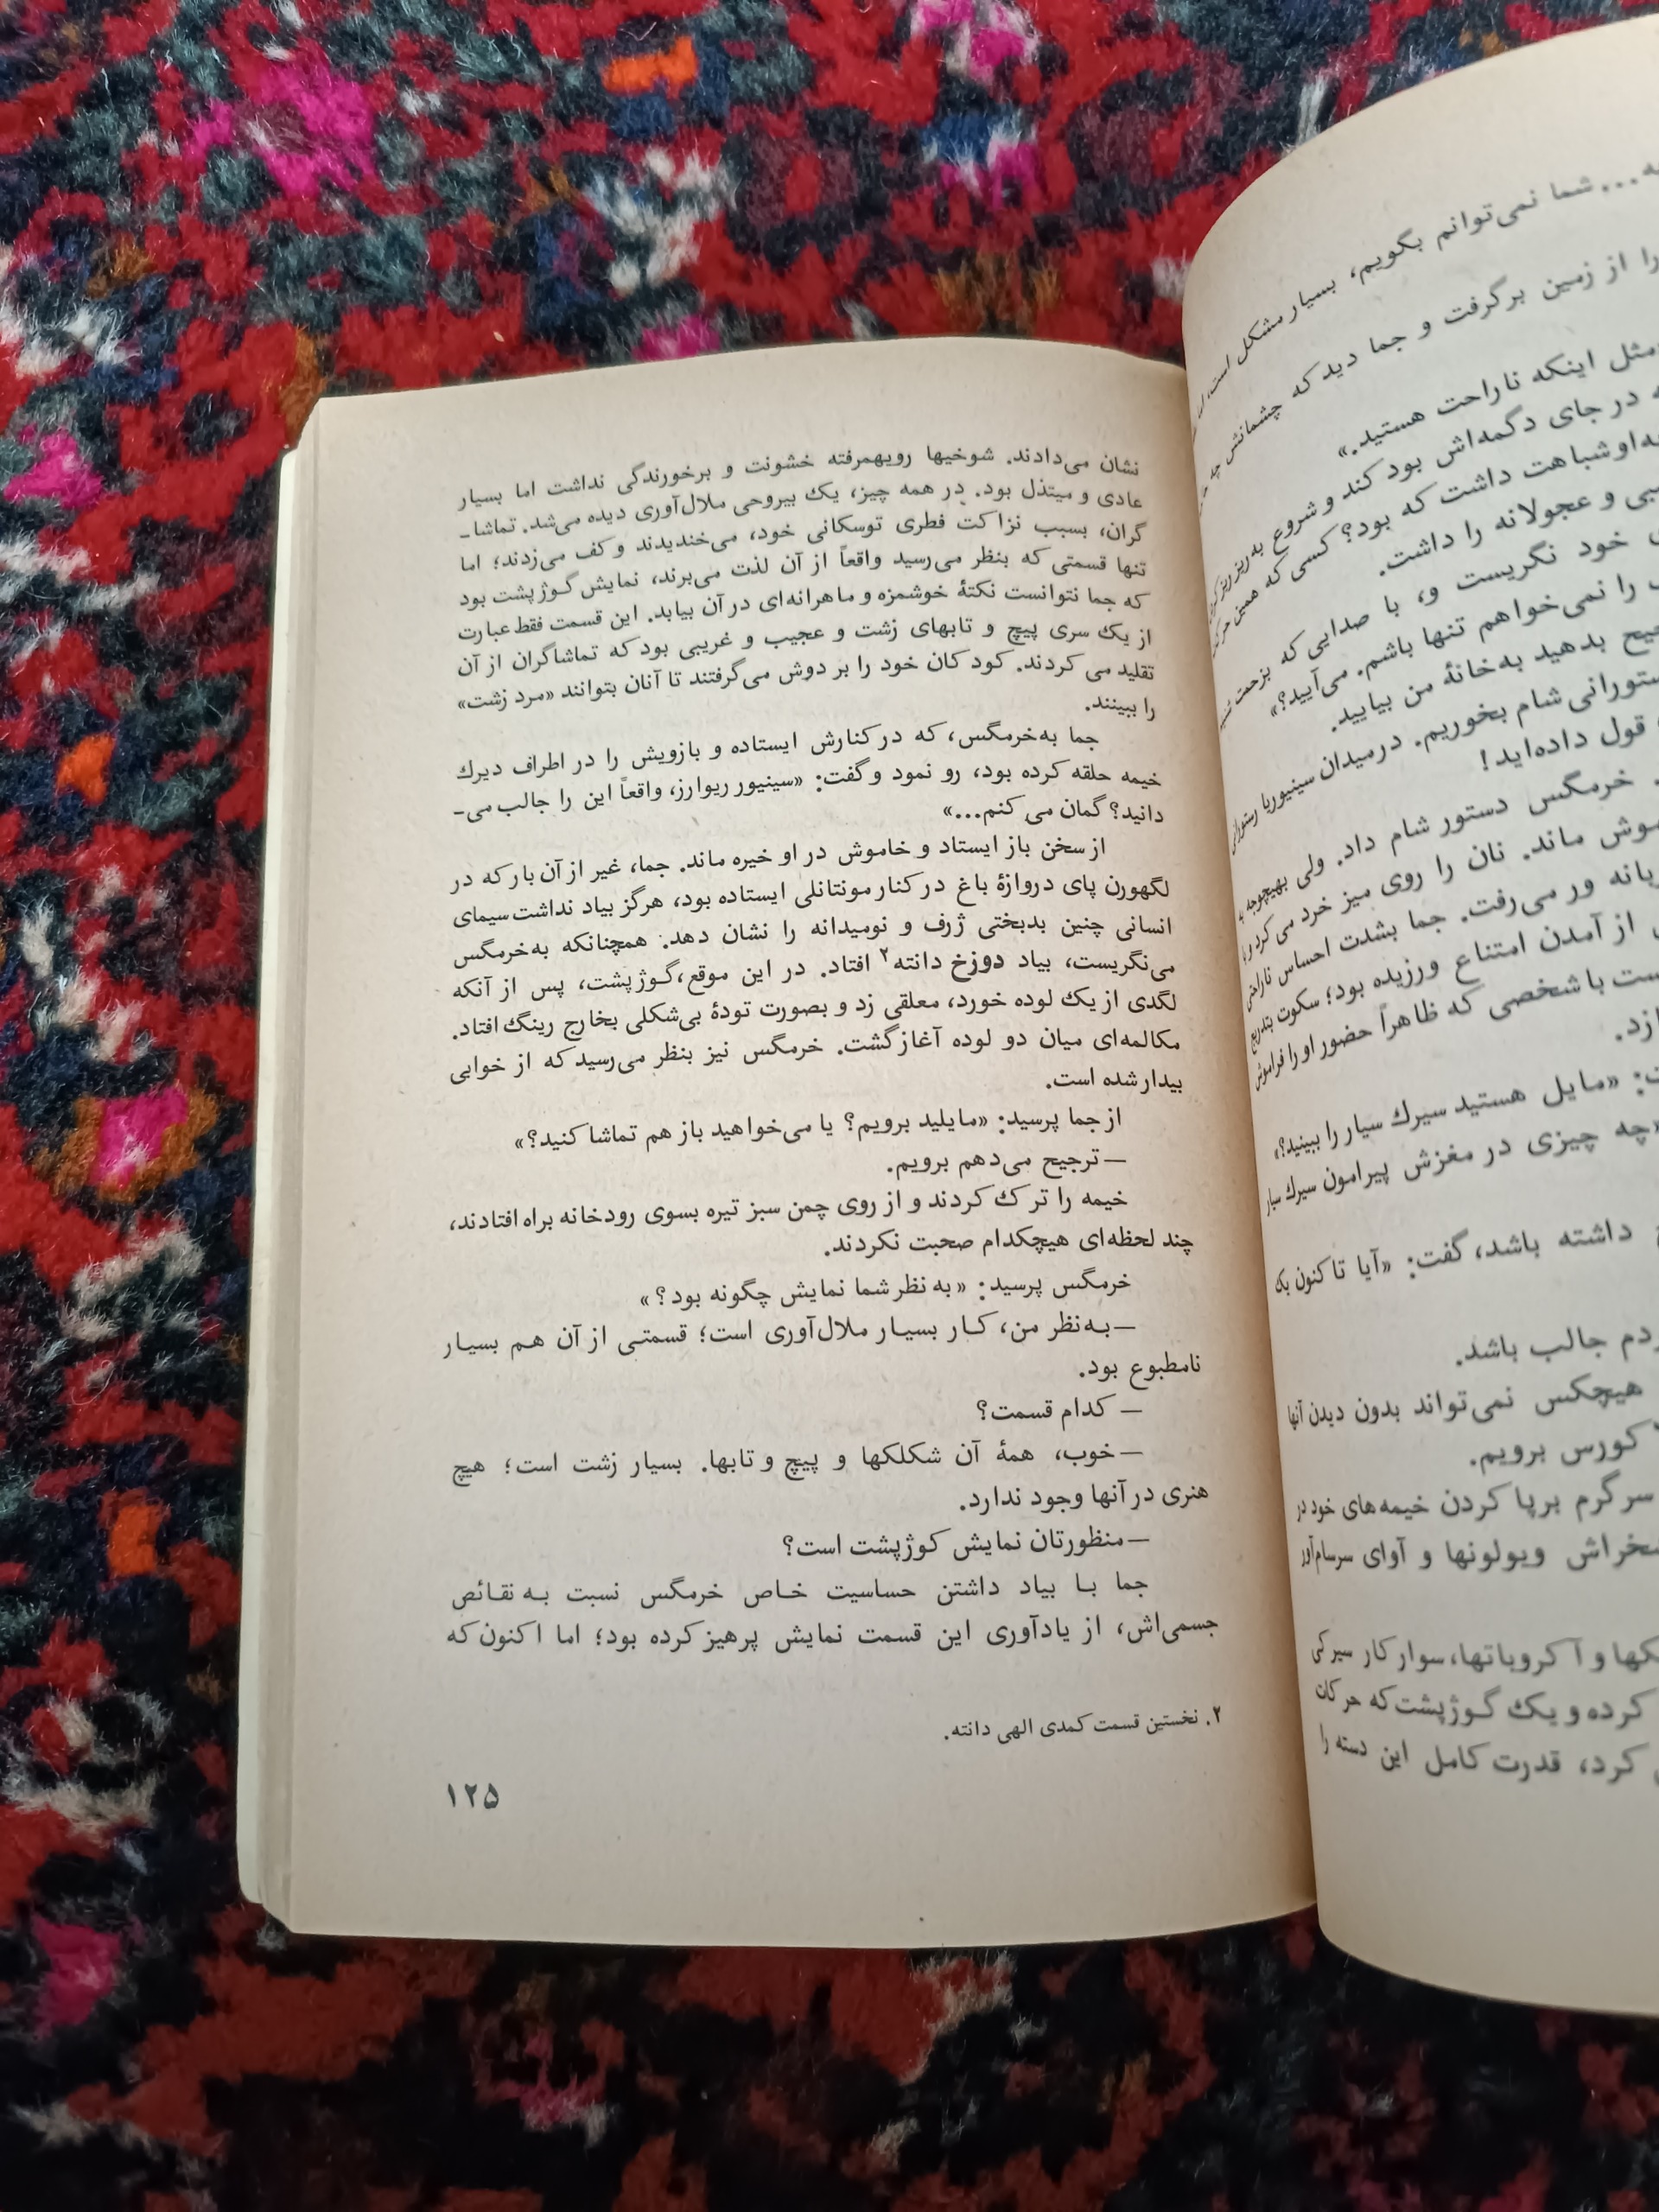 ه... شما نمی‌توانم بگویم، بسیار مشکل است،
را از زمین برگرفت و جما دید که چشمانش چه
مثل اینکه ناراحت هستید.»
در جای دگمه‌اش بود کند و شروع به ریز ریز
به‌او شباهت داشت که بود؟ کسی که همین
بی و عجولانه را داشت.
خود نگریست و، با صدایی که بزحمت
را نمی‌خواهم تنها باشم. می‌آیید؟»
جیح بدهید به‌خانهٔ من بیایید.
ستورانی شام بخوریم. در میدان سینیوریا
قول داده‌اید!
خرمگس دستور شام داد. ولی بهیچوجه
موش ماند. نان را روی میز خرد می‌کرد و با
ور می‌رفت. جما بشدت احساس ناراحتی
از آمدن امتناع ورزیده بود؛ سکوت بتدریج
ست با شخصی که ظاهراً حضور او را فراموش
ازد.
ت: «مایل هستید سیرک سیار را ببینید؟»
«چه چیزی در مغزش پیرامون سیرک سیار
داشته باشد، گفت: «آیا تا کنون یک
ردم جالب باشد.
هیچکس نمی‌تواند بدون دیدن آنها
کورس برویم.
سرگرم برپا کردن خیمه‌های خود در
خراش ویولونها و آوای سرسام‌آور
کها و آکروباتها، سوارکار سیرکی
کرده و یک گوژپشت که حرکات
کرد، قدرت کامل این دسته را
نشان می‌دادند. شوخیها رویهمرفته خشونت و برخورندگی نداشت اما بسیار
عادی و مبتذل بود. در همه چیز، یک بیروحی ملال‌آوری دیده می‌شد. تماشا-
گران، بسبب نزاکت فطری توسکانی خود، می‌خندیدند و کف می‌زدند؛ اما
تنها قسمتی که بنظر می‌رسید واقعاً از آن لذت می‌برند، نمایش گوژپشت بود
که جما نتوانست نکتهٔ خوشمزه و ماهرانه‌ای در آن بیابد. این قسمت فقط عبارت
از یک سری پیچ و تابهای زشت و عجیب و غریبی بود که تماشاگران از آن
تقلید می‌کردند. کودکان خود را بر دوش می‌گرفتند تا آنان بتوانند «مرد زشت»
را ببینند.
جما به‌خرمگس، که در کنارش ایستاده و بازویش را در اطراف دیرک
خیمه حلقه کرده بود، رو نمود و گفت: «سینیور ریوارز، واقعاً این را جالب می-
دانید؟ گمان می‌کنم...»
از سخن باز ایستاد و خاموش در او خیره ماند. جما، غیر از آن بار که در
لگهورن پای دروازهٔ باغ در کنار مونتانلی ایستاده بود، هرگز بیاد نداشت سیمای
انسانی چنین بدبختی ژرف و نومیدانه را نشان دهد. همچنانکه به‌خرمگس
می‌نگریست، بیاد دوزخ دانته۲ افتاد. در این موقع، گوژپشت، پس از آنکه
لگدی از یک لوده خورد، معلقی زد و بصورت تودهٔ بی‌شکلی بخارج رینگ افتاد.
مکالمه‌ای میان دو لوده آغاز گشت. خرمگس نیز بنظر می‌رسید که از خوابی
بیدار شده است.
از جما پرسید: «مایلید برویم؟ یا می‌خواهید باز هم تماشا کنید؟»
— ترجیح می‌دهم برویم.
خیمه را ترک کردند و از روی چمن سبز تیره بسوی رودخانه براه افتادند،
چند لحظه‌ای هیچکدام صحبت نکردند.
خرمگس پرسید: «به نظر شما نمایش چگونه بود؟»
— به‌نظر من، کار بسیار ملال‌آوری است؛ قسمتی از آن هم بسیار
نامطبوع بود.
— کدام قسمت؟
— خوب، همهٔ آن شکلکها و پیچ و تابها. بسیار زشت است؛ هیچ
هنری در آنها وجود ندارد.
— منظورتان نمایش کوژپشت است؟
جما با بیاد داشتن حساسیت خاص خرمگس نسبت به نقائص
جسمی‌اش، از یادآوری این قسمت نمایش پرهیز کرده بود؛ اما اکنون که
۲. نخستین قسمت کمدی الهی دانته.
۱۲۵